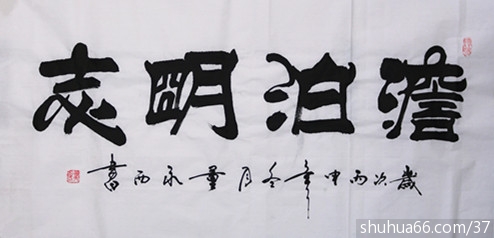 澹泊明志
歲次丙申年冬月董永西書
shuhua66.com/37